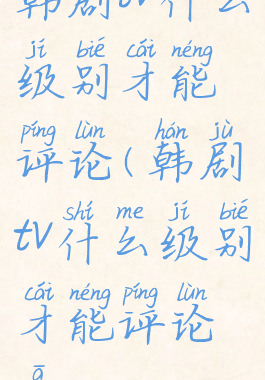 韩剧tv什么
jí bié cái néng
级别才能
píng lùn hán jù
评论(韩剧
shí me jí bié
tv什么级别
cái néng píng lùn
才能评论
ā